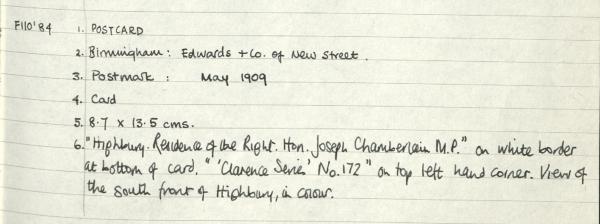 F110'84 1. POSTCARD
2. Birmingham: Edwards + Co. of New Street.
3. Postmark: May 1909
4. Card
5. 8.7 x 13.5 cms.
6. "Highbury. Residence of the Right. Hon. Joseph Chamberlain M.P." on white border
at bottom of card. "'Clarence Series' No.172" on top left hand corner. View of
the South front of Highbury, in colour.